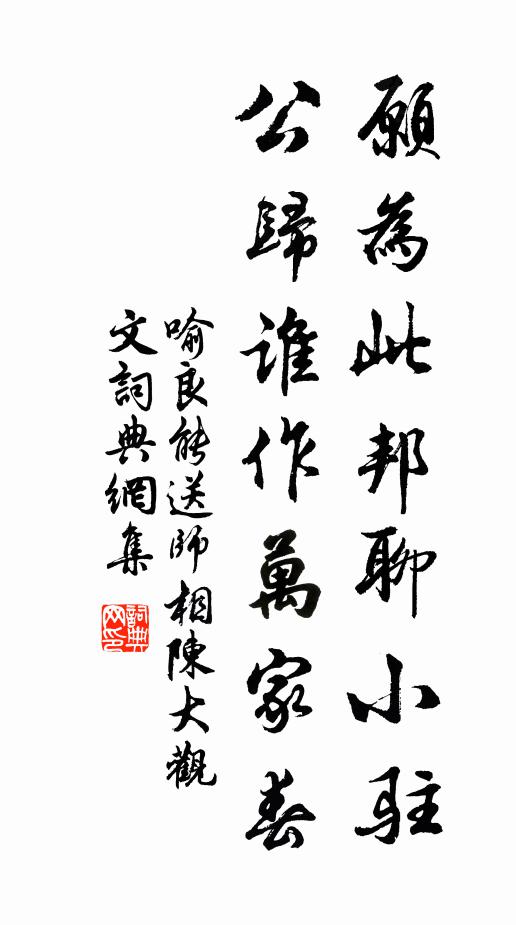 願為此邦聊小駐
公歸誰作萬家春
喻良能送師相陳大觀
文詞典網集
詞典網印